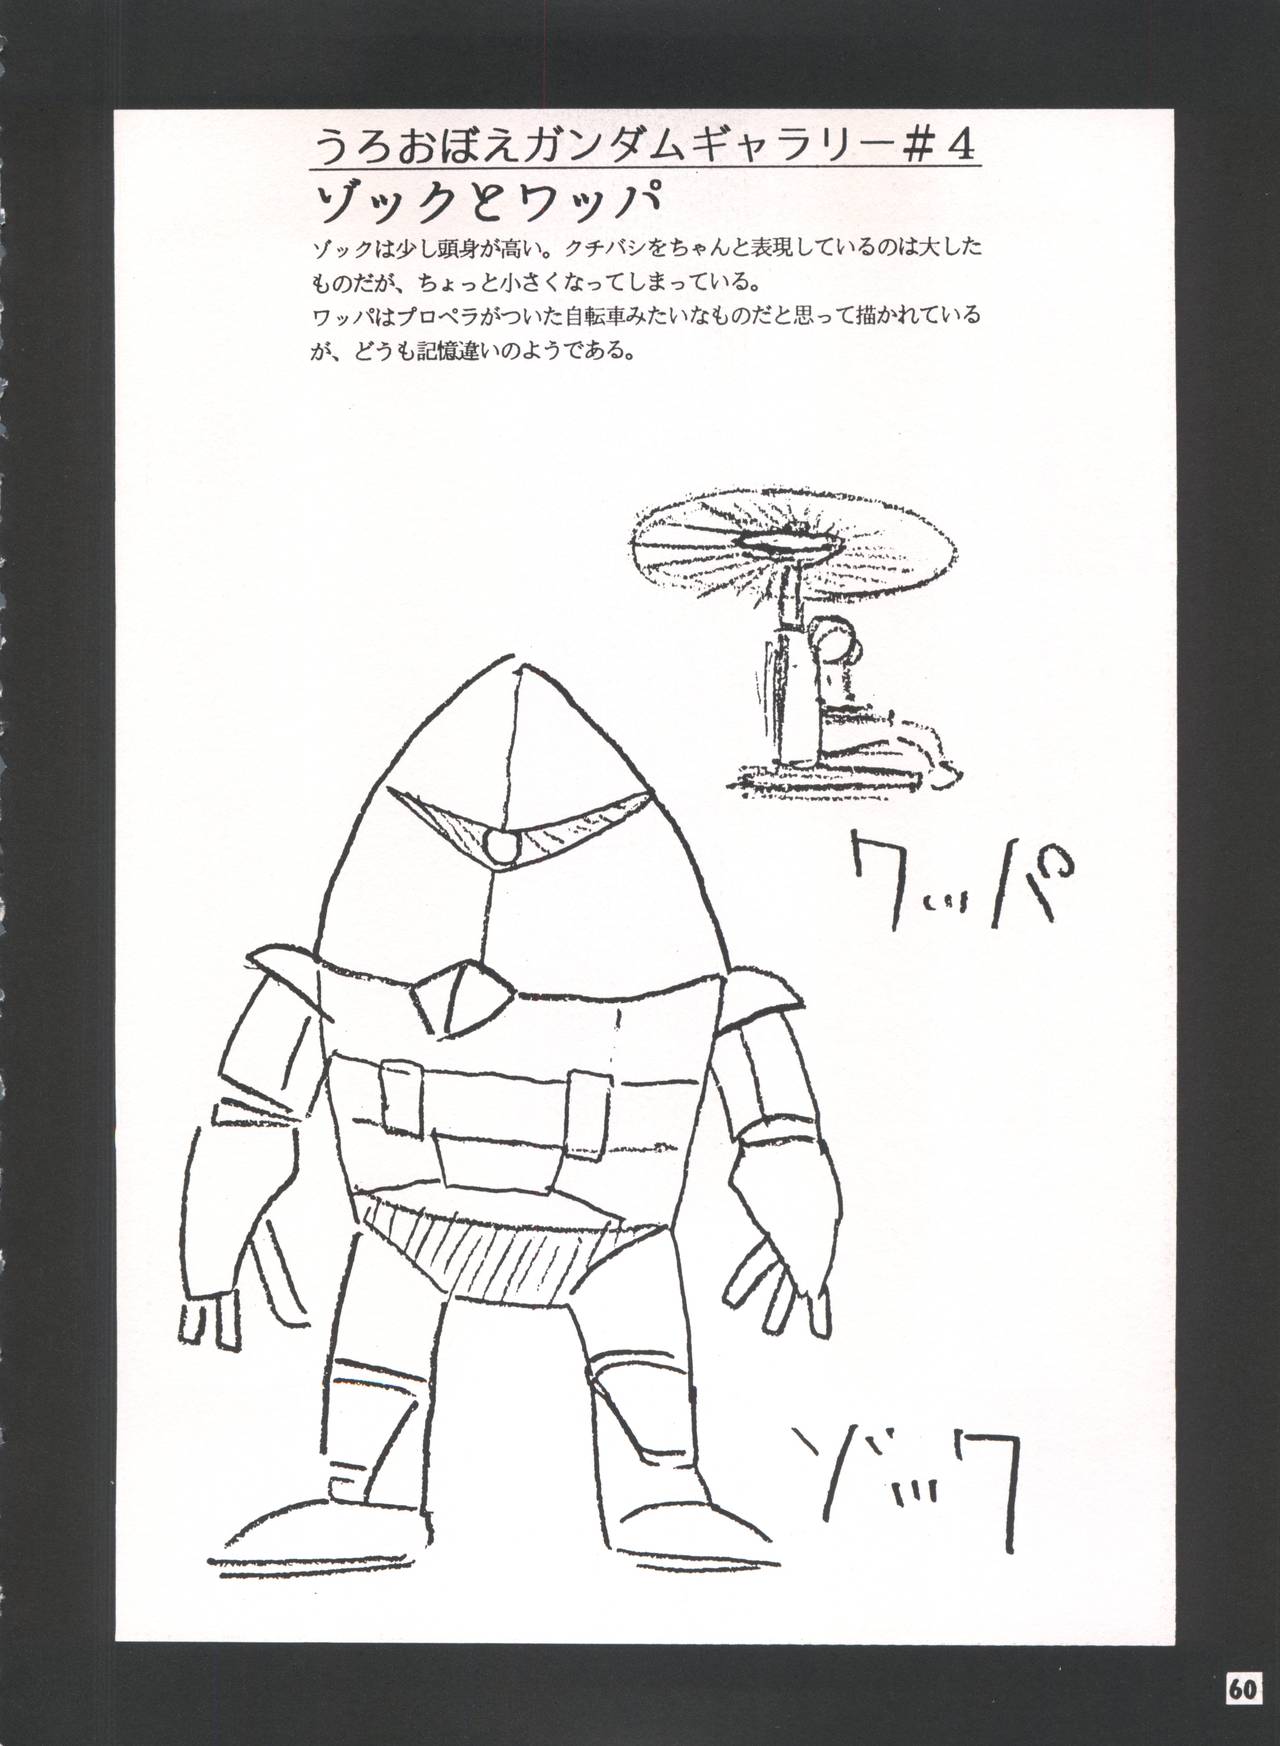 うろおぼえガンダムギャラリー＃４
ゾックとワッパ
ゾックは少し頭身が高い。クチバシをちゃんと表現しているのは大した
ものだが、ちょっと小さくなってしまっている。
ワッパはプロペラがついた自転車みたいなものだと思って描かれている
が、どうも記憶違いのようである。
ワッパ
ゾック
60